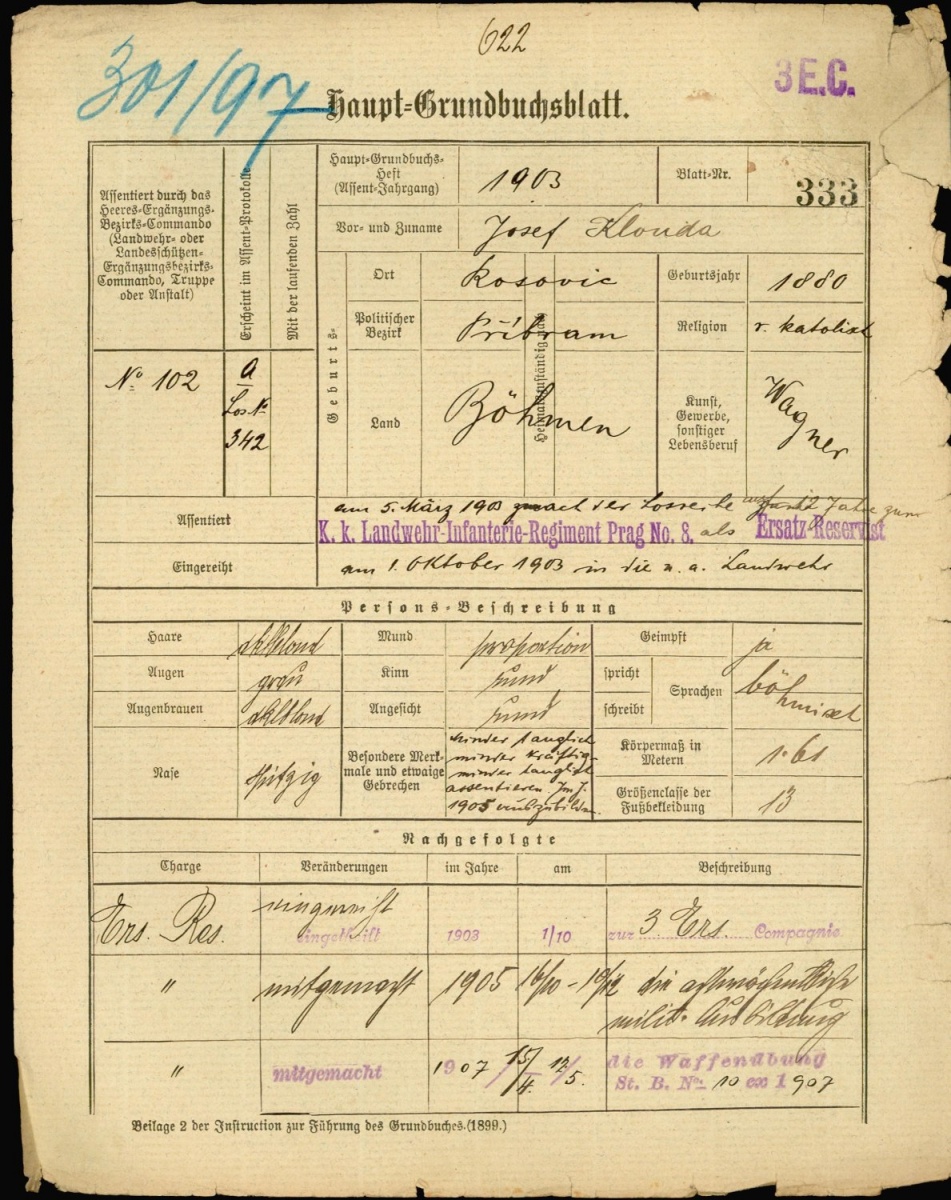 622
301/97
3 E.C.
Haupt-Grundbuchsblatt.
Assentiert durch das
Heeres-Ergänzungs-
Bezirks-Commando
(Landwehr- oder
Landesschützen-
Ergänzungsbezirks-
Commando, Truppe
oder Anstalt)
Erscheint im Assent-Protokolle
Mit der laufenden Zahl
Haupt-Grundbuchs-
Heft
(Assent-Jahrgang)
1903
Blatt-Nr.
333
Vor- und Zuname
Josef Klouda
Geburts-
Ort
Kosovic
Geburtsjahr
1880
Politischer
Bezirk
Příbram
Religion
r. katolisch
Land
Böhmen
Kunst,
Gewerbe,
sonstiger
Lebensberuf
Wagner
No 102
a
Los No
342
Assentiert
am 5. März 1903 nach der Losreihe auf 12 Jahre zum
K. k. Landwehr-Infanterie-Regiment Prag No. 8. als Ersatz-Reservist
Eingereiht
am 1. Oktober 1903 in die n. a. Landwehr
Persons-Beschreibung
Haare
dklblond
Mund
proportion
Geimpft
ja
Augen
grau
Kinn
rund
spricht
schreibt
Sprachen
böhmisch
Augenbrauen
dklblond
Angesicht
rund
Nase
spitzig
Besondere Merk-
male und etwaige
Gebrechen
minder tauglich
minder kräftig
minder tauglich
assentieren. Im J.
1905 auszubilden.
Körpermaß in
Metern
1·61
Größenclasse der
Fußbekleidung
13
Nachgefolgte
Charge
Veränderungen
im Jahre
am
Beschreibung
Ers. Res.
eingereiht
eingetheilt
1903
1/10
zur 3 Ers. Compagnie
"
mitgemacht
1905
16/10 - 10/12
die achtwöchentliche
milit. Ausbildung
"
mitgemacht
1907
15/4.
12/5.
die Waffenübung
St. B. No. 10 ex 1907
Beilage 2 der Instruction zur Führung des Grundbuches.(1899.)